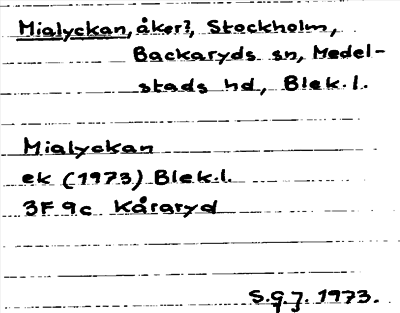 Mialyckan, åker?, Stockholm,
Backaryds sn, Medel-
stads hd, Blek.l.
Mialyckan
ek (1973) Blek.l.
3F 9c Kåraryd
S.G.J. 1973.